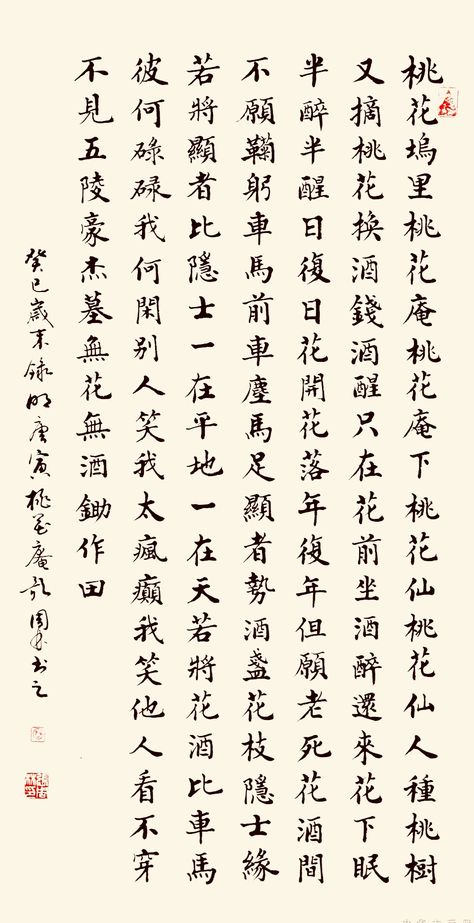 桃花塢里桃花庵桃花庵下桃花仙桃花仙人種桃樹
又摘桃花換酒錢酒醒只在花前坐酒醉還來花下眠
半醉半醒日復日花開花落年復年但願老死花酒間
不願鞠躬車馬前車塵馬足顯者勢酒盞花枝隱士緣
若將顯者比隱士一在平地一在天若將花酒比車馬
彼何碌碌我何閑别人笑我太瘋癲我笑他人看不穿
不見五陵豪杰墓無花無酒鋤作田
癸巳歲末錄明唐寅桃花庵歌周书之